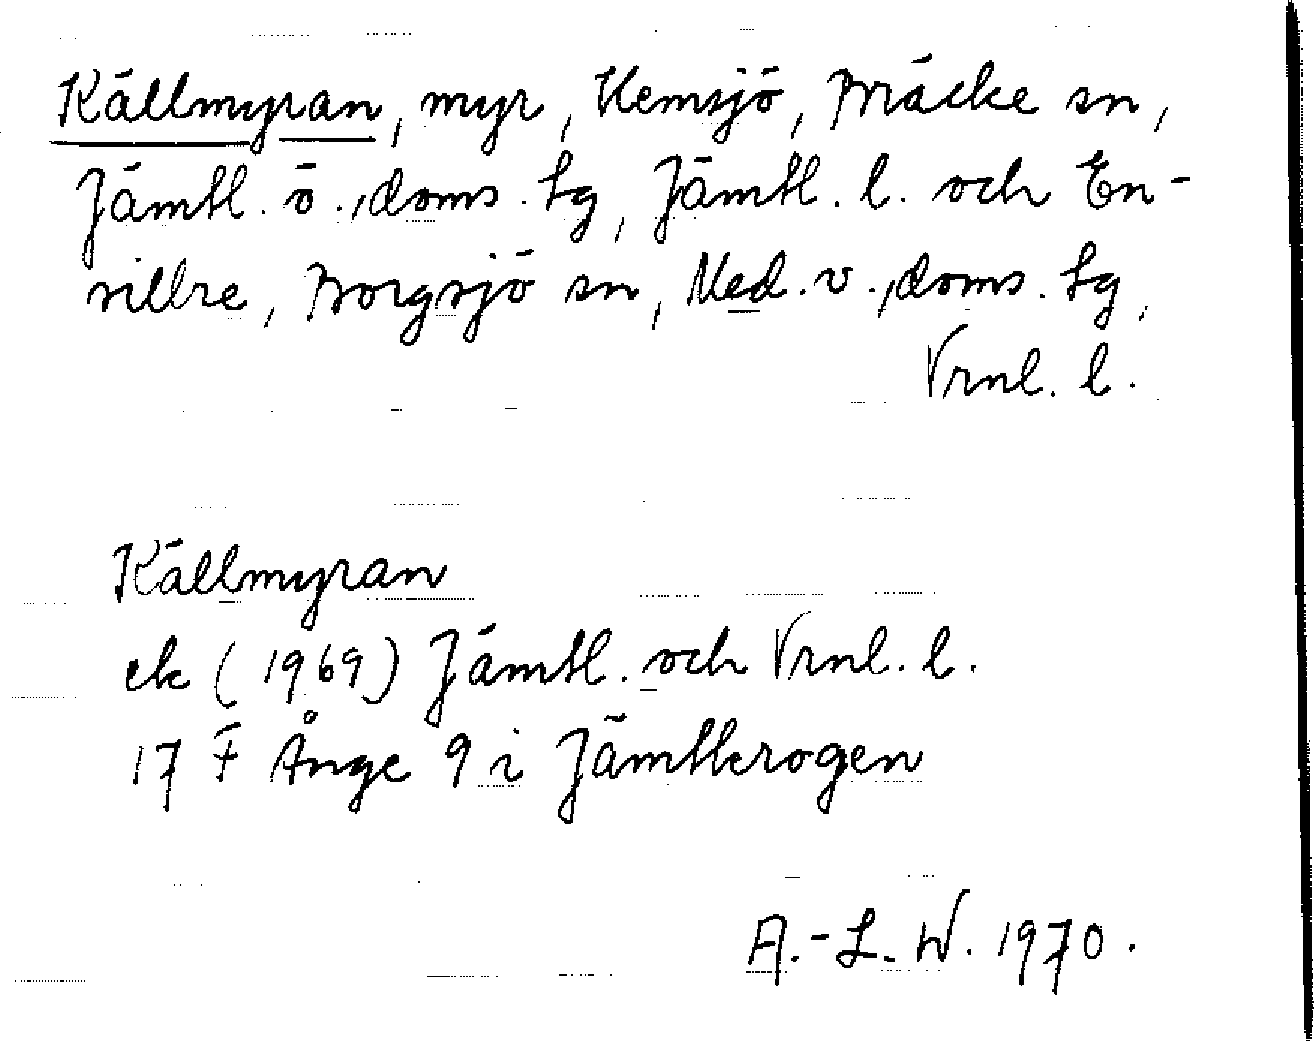 Källmyran, myr, Hemsjö, Bräcke sn,
Jämtl. ö., doms. tg, Jämtl. l. och En-
sillre, Borgsjö sn, Med. v., doms. tg,
Vrnl. l.
Källmyran
ek (1969) Jämtl. och Vrnl. l.
17 F Ånge 9 i Jämtkrogen
A.-L. W. 1970.